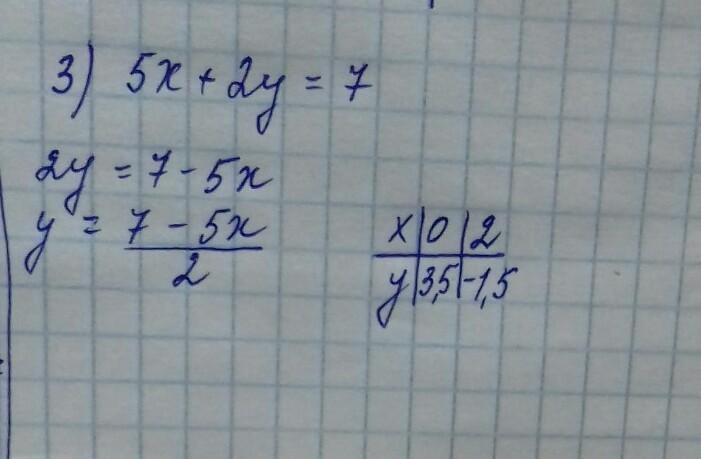 3) 5x + 2y = 7
2y = 7 - 5x
y = 7 - 5x
2
x | 0 | 2
y | 3,5 | -1,5